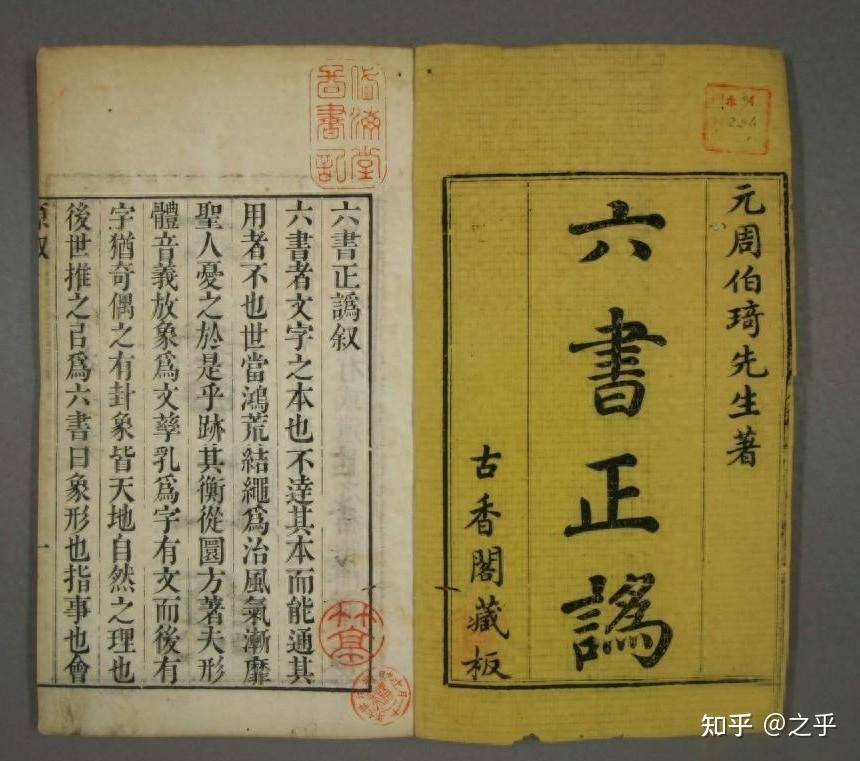 元周伯琦先生著
六書正譌
古香閣藏板
六書正譌叙
六書者文字之本也不達其本而能通其
用者不也世當鴻荒結繩爲治風氣漸靡
聖人憂之於是乎跡其衡從圜方著夫形
體音義放象爲文孳乳爲字有文而後有
字猶奇偶之有卦象皆天地自然之理也
後世推之㠯爲六書曰象形也指事也會
一
知乎 @之乎